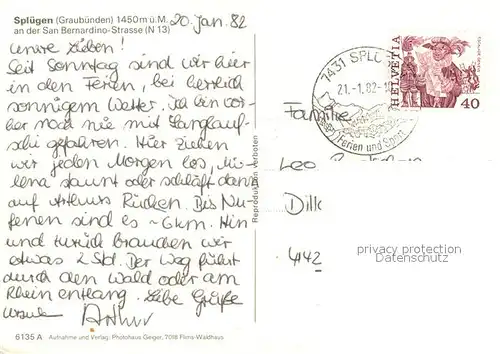 Splügen (Graubünden) 1450 m ü. M.
an der San Bernardino-Strasse (N 13)
20. Jan. 82
unsre Lieben!
Seit Sonntag sind wir hier
in den Ferien, bei herrlich
sonnigem Wetter. Ich bin vor-
her noch nie mit Langlauf-
ski gefahren. Hier ziehen
wir jeden Morgen los, Mi-
lena staunt oder schläft dann
auf Arthurs Rücken. Bis Nu-
fenen sind es ~ 6 km. Hin
und zurück brauchen wir
etwas 2 Std. Der Weg führt
durch den Wald oder am
Rhein entlang. Liebe Grüße
Ursula Arthur
6135 A Aufnahme und Verlag: Photohaus Geiger, 7018 Flims-Waldhaus
Reproduktion verboten
7431 SPLÜGEN
21.-1.82-1
Ferien und Sport
HELVETIA
40
Familie
Leo
Dill
4142
privacy protection
Datenschutz